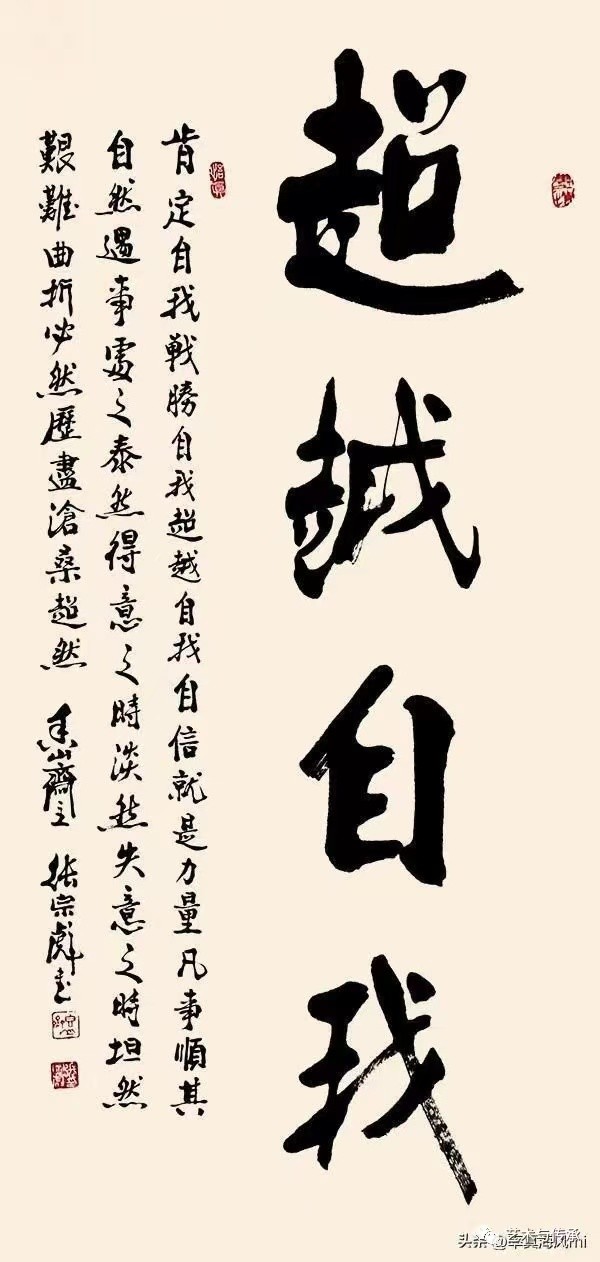 超越自我
肯定自我戰勝自我超越自我自信就是力量凡事順其
自然遇事處之泰然得意之時淡然失意之時坦然
艱難曲折必然歷盡滄桑超然 山齋主 張宗彪書
头条 艺术与传承